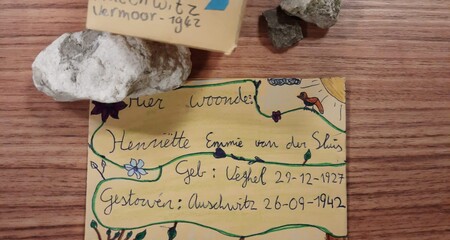 witz
vermoor - 1942
Hier woonde:
Henriëtte Emmie van der Sluis
Geb: Veghel 29-12-1927
Gestorven: Auschwitz 26-09-1942